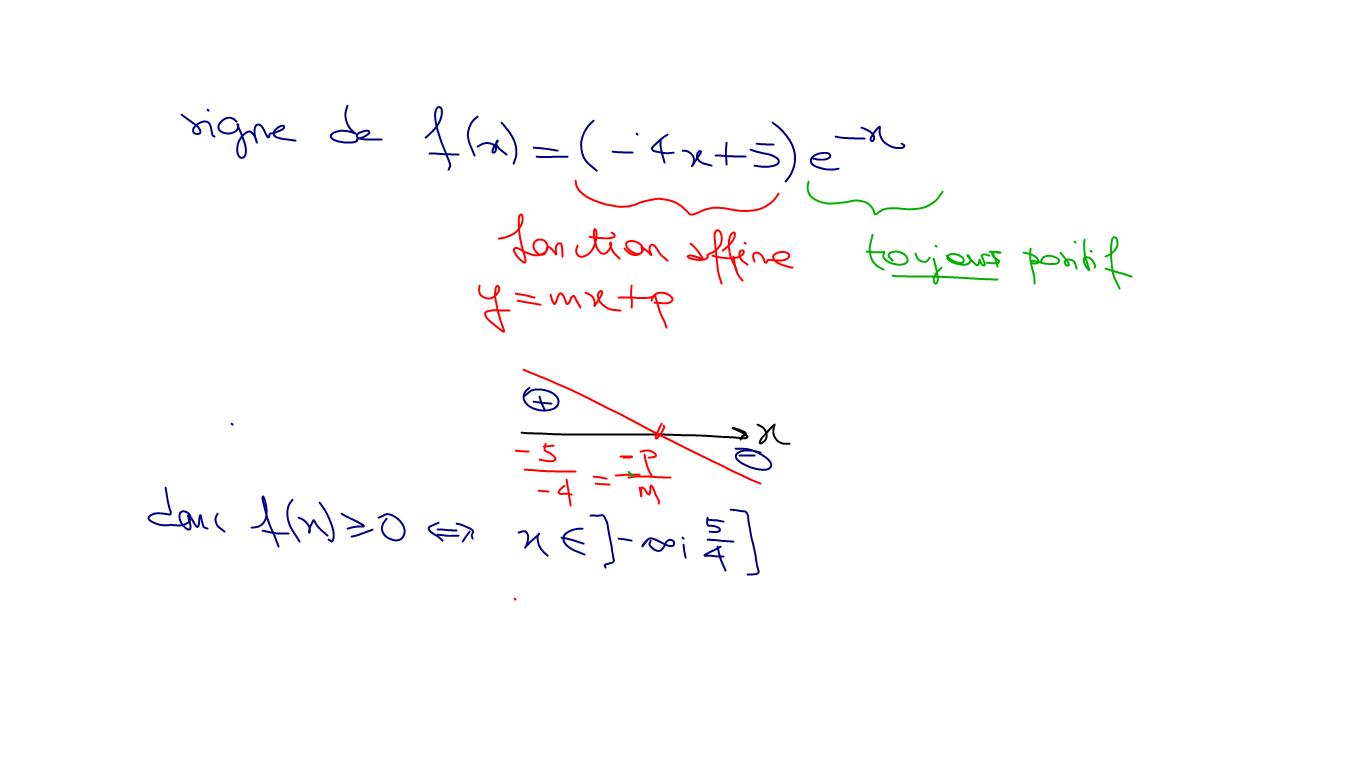 signe de f(x) = (-4x+5) e^{-x}
fonction affine toujours positif
y = mx+p
+
x
-
-5/-4 = -p/m
donc f(x) ≥ 0 ⇔ x ∈ ]-∞; 5/4]